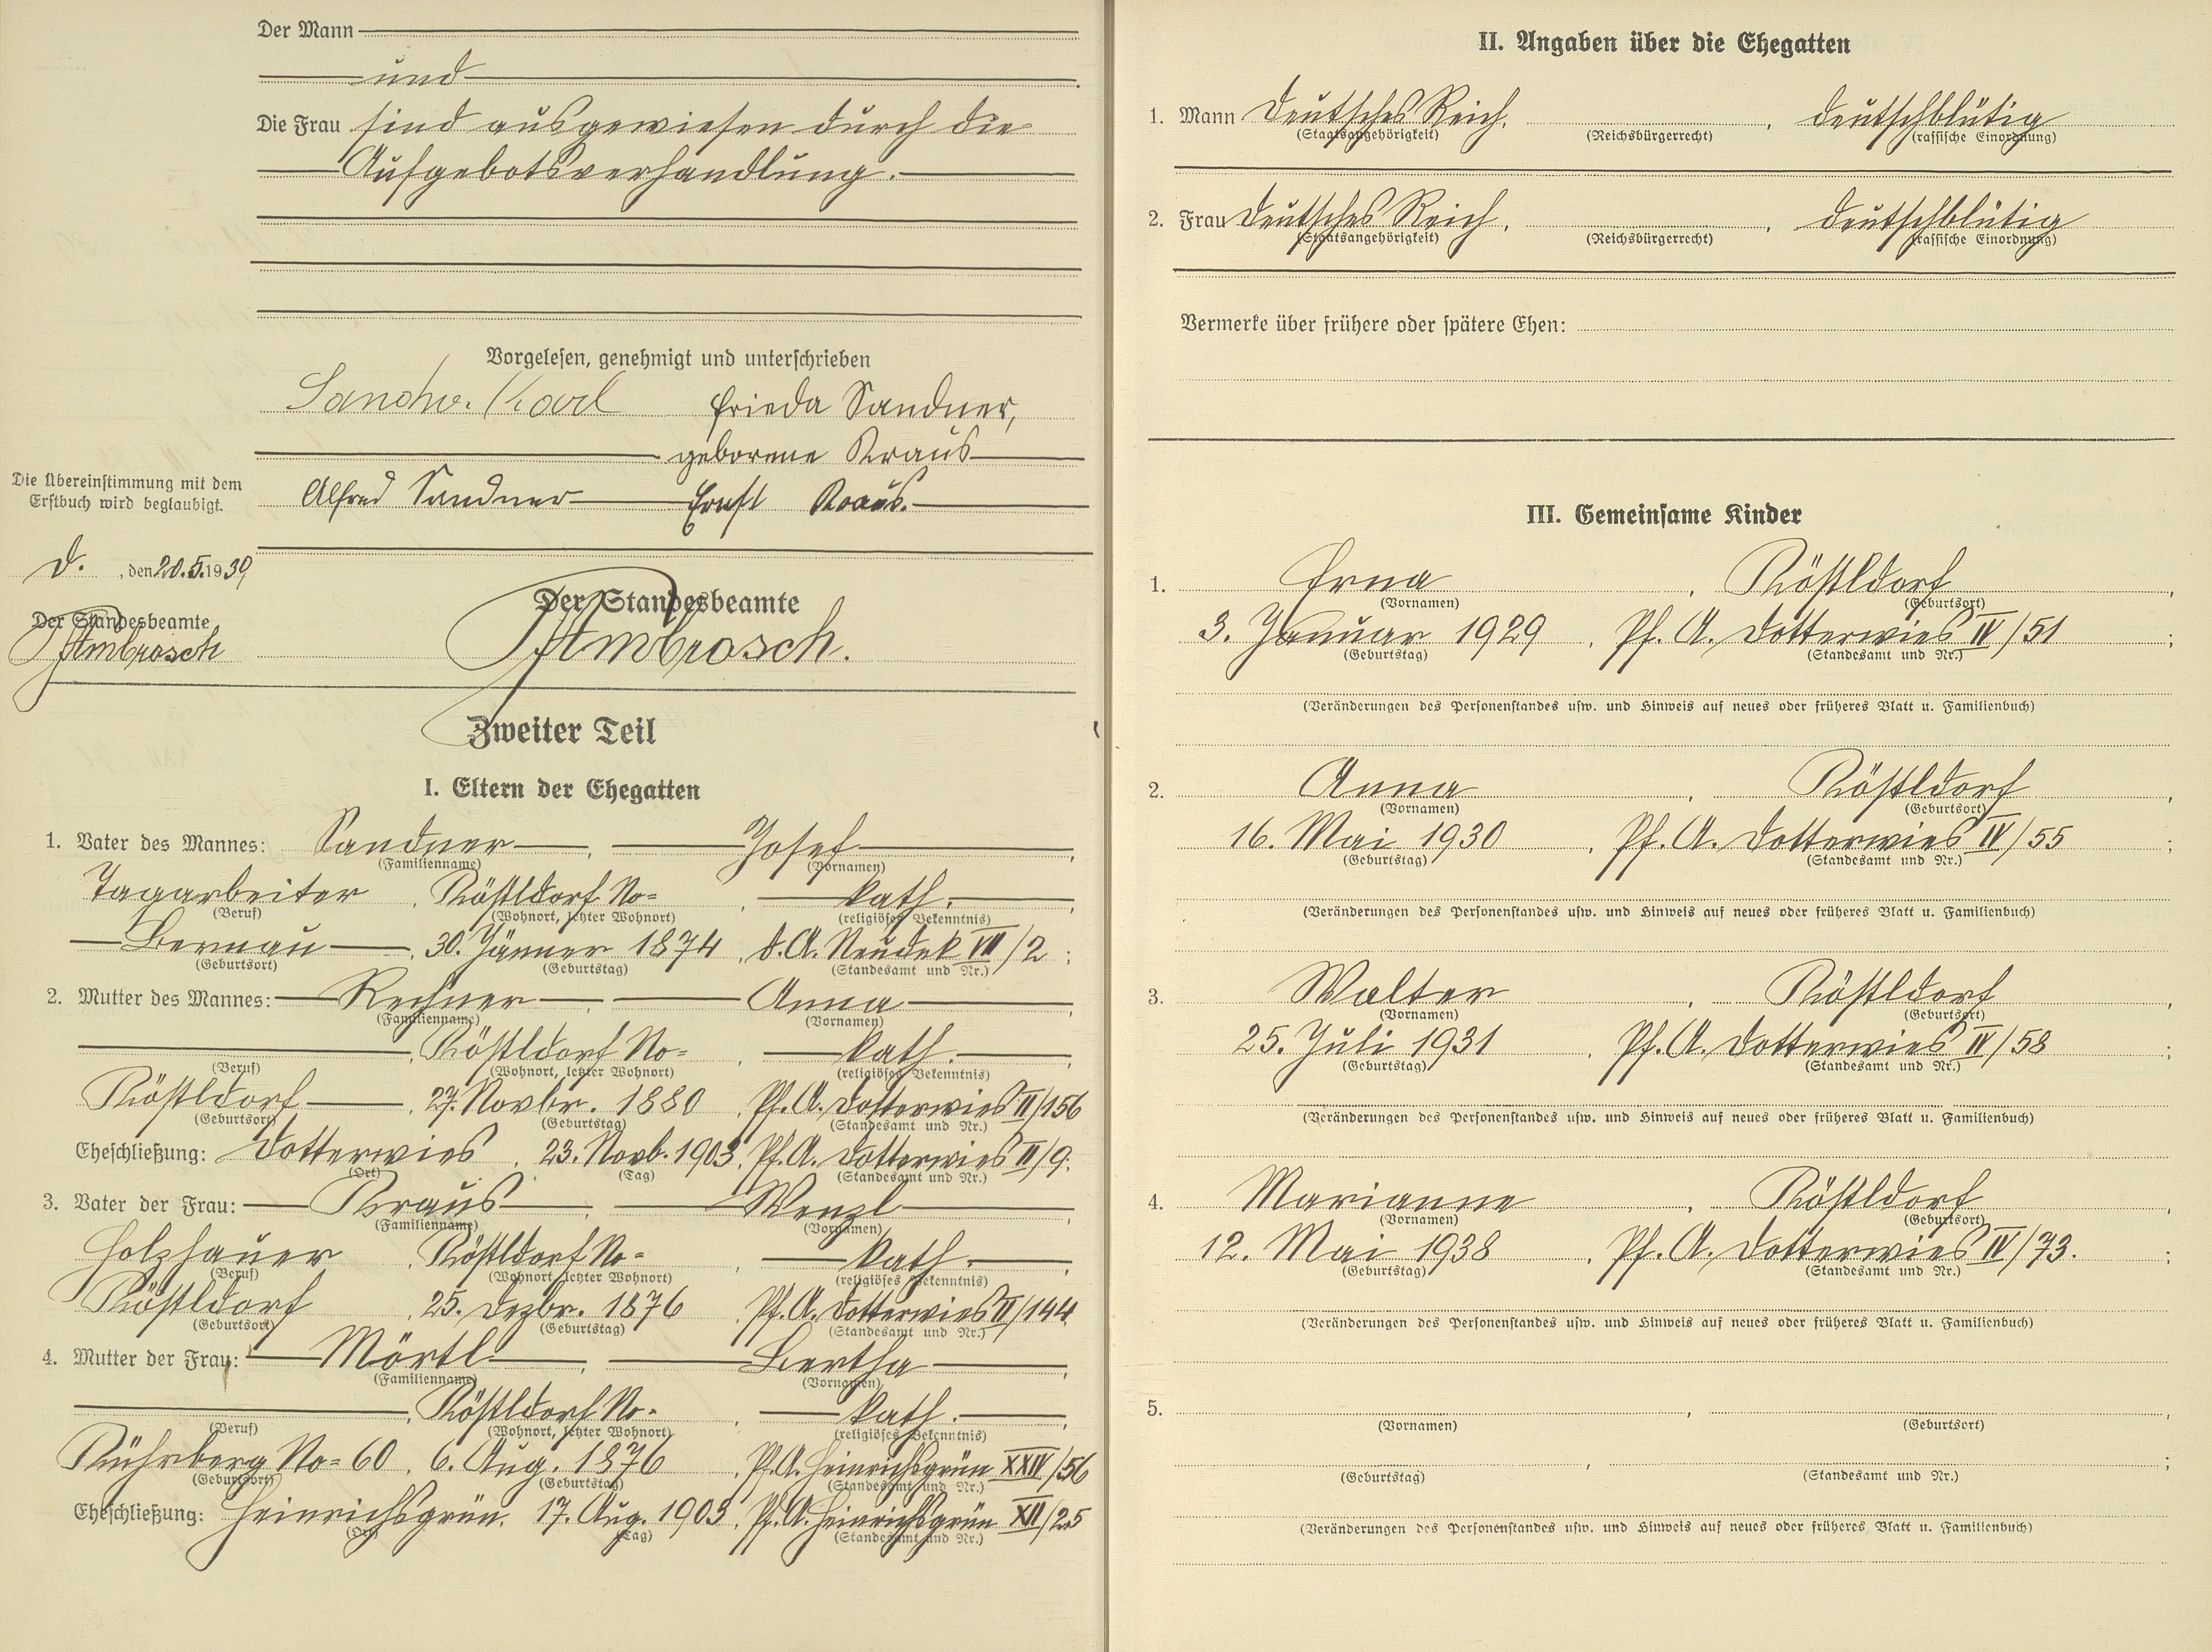 Der Mann
und
Die Frau sind ausgewiesen durch die
Aufgebotsverhandlung.
Vorgelesen, genehmigt und unterschrieben
Sandner Karl Frieda Sandner,
geborene Kraus
Alfred Sandner Ernst Kraus.
Die Übereinstimmung mit dem
Erstbuch wird beglaubigt.
D. , den 20.5.1939
Der Standesbeamte
Ambrosch
Der Standesbeamte
Ambrosch.
Zweiter Teil
I. Eltern der Ehegatten
1. Vater des Mannes: Sandner, Josef,
(Familienname) (Vornamen)
Tagarbeiter, Köstldorf No=, kath.,
(Beruf) (Wohnort, letzter Wohnort) (religiöses Bekenntnis)
Bernau, 30. Jänner 1874, d.A. Neudek VII/2;
(Geburtsort) (Geburtstag) (Standesamt und Nr.)
2. Mutter des Mannes: Rechner, Anna,
(Familienname) (Vornamen)
, Köstldorf No=, kath.,
(Beruf) (Wohnort, letzter Wohnort) (religiöses Bekenntnis)
Köstldorf, 27. Novbr. 1880, Pf.A. Dotterwies II/156
(Geburtsort) (Geburtstag) (Standesamt und Nr.)
Eheschließung: Dotterwies, 23. Novb. 1903, Pf.A. Dotterwies II/9.
(Ort) (Tag) (Standesamt und Nr.)
3. Vater der Frau: Kraus, Wenzl,
(Familienname) (Vornamen)
Holzhauer, Köstldorf No=, kath.,
(Beruf) (Wohnort, letzter Wohnort) (religiöses Bekenntnis)
Köstldorf, 25. Dezbr. 1876, Pf.A. Dotterwies II/144
(Geburtsort) (Geburtstag) (Standesamt und Nr.)
4. Mutter der Frau: Mörtl, Bertha,
(Familienname) (Vornamen)
, Köstldorf No=, kath.,
(Beruf) (Wohnort, letzter Wohnort) (religiöses Bekenntnis)
No= 60, 6. Aug. 1876, Pf.A. Heinrichsgrün XXIV/56
(Geburtsort) (Geburtstag) (Standesamt und Nr.)
Eheschließung: Heinrichsgrün, 17. Aug. 1903, Pf.A. Heinrichsgrün XII/25
(Ort) (Tag) (Standesamt und Nr.)
II. Angaben über die Ehegatten
1. Mann Deutsches Reich, , deutschblütig
(Staatsangehörigkeit) (Reichsbürgerrecht) (rassische Einordnung)
2. Frau Deutsches Reich, , deutschblütig
(Staatsangehörigkeit) (Reichsbürgerrecht) (rassische Einordnung)
Vermerke über frühere oder spätere Ehen:
III. Gemeinsame Kinder
1. Erna, Köstldorf,
(Vornamen) (Geburtsort)
3. Januar 1929, Pf. A. Dotterwies IV/51;
(Geburtstag) (Standesamt und Nr.)
(Veränderungen des Personenstandes usw. und Hinweis auf neues oder früheres Blatt u. Familienbuch)
2. Anna, Köstldorf,
(Vornamen) (Geburtsort)
16. Mai 1930, Pf. A. Dotterwies IV/55;
(Geburtstag) (Standesamt und Nr.)
(Veränderungen des Personenstandes usw. und Hinweis auf neues oder früheres Blatt u. Familienbuch)
3. Walter, Köstldorf,
(Vornamen) (Geburtsort)
25. Juli 1931, Pf. A. Dotterwies IV/58;
(Geburtstag) (Standesamt und Nr.)
(Veränderungen des Personenstandes usw. und Hinweis auf neues oder früheres Blatt u. Familienbuch)
4. Marianne, Köstldorf,
(Vornamen) (Geburtsort)
12. Mai 1938, Pf. A. Dotterwies IV/73.;
(Geburtstag) (Standesamt und Nr.)
(Veränderungen des Personenstandes usw. und Hinweis auf neues oder früheres Blatt u. Familienbuch)
5. , ,
(Vornamen) (Geburtsort)
, ;
(Geburtstag) (Standesamt und Nr.)
(Veränderungen des Personenstandes usw. und Hinweis auf neues oder früheres Blatt u. Familienbuch)